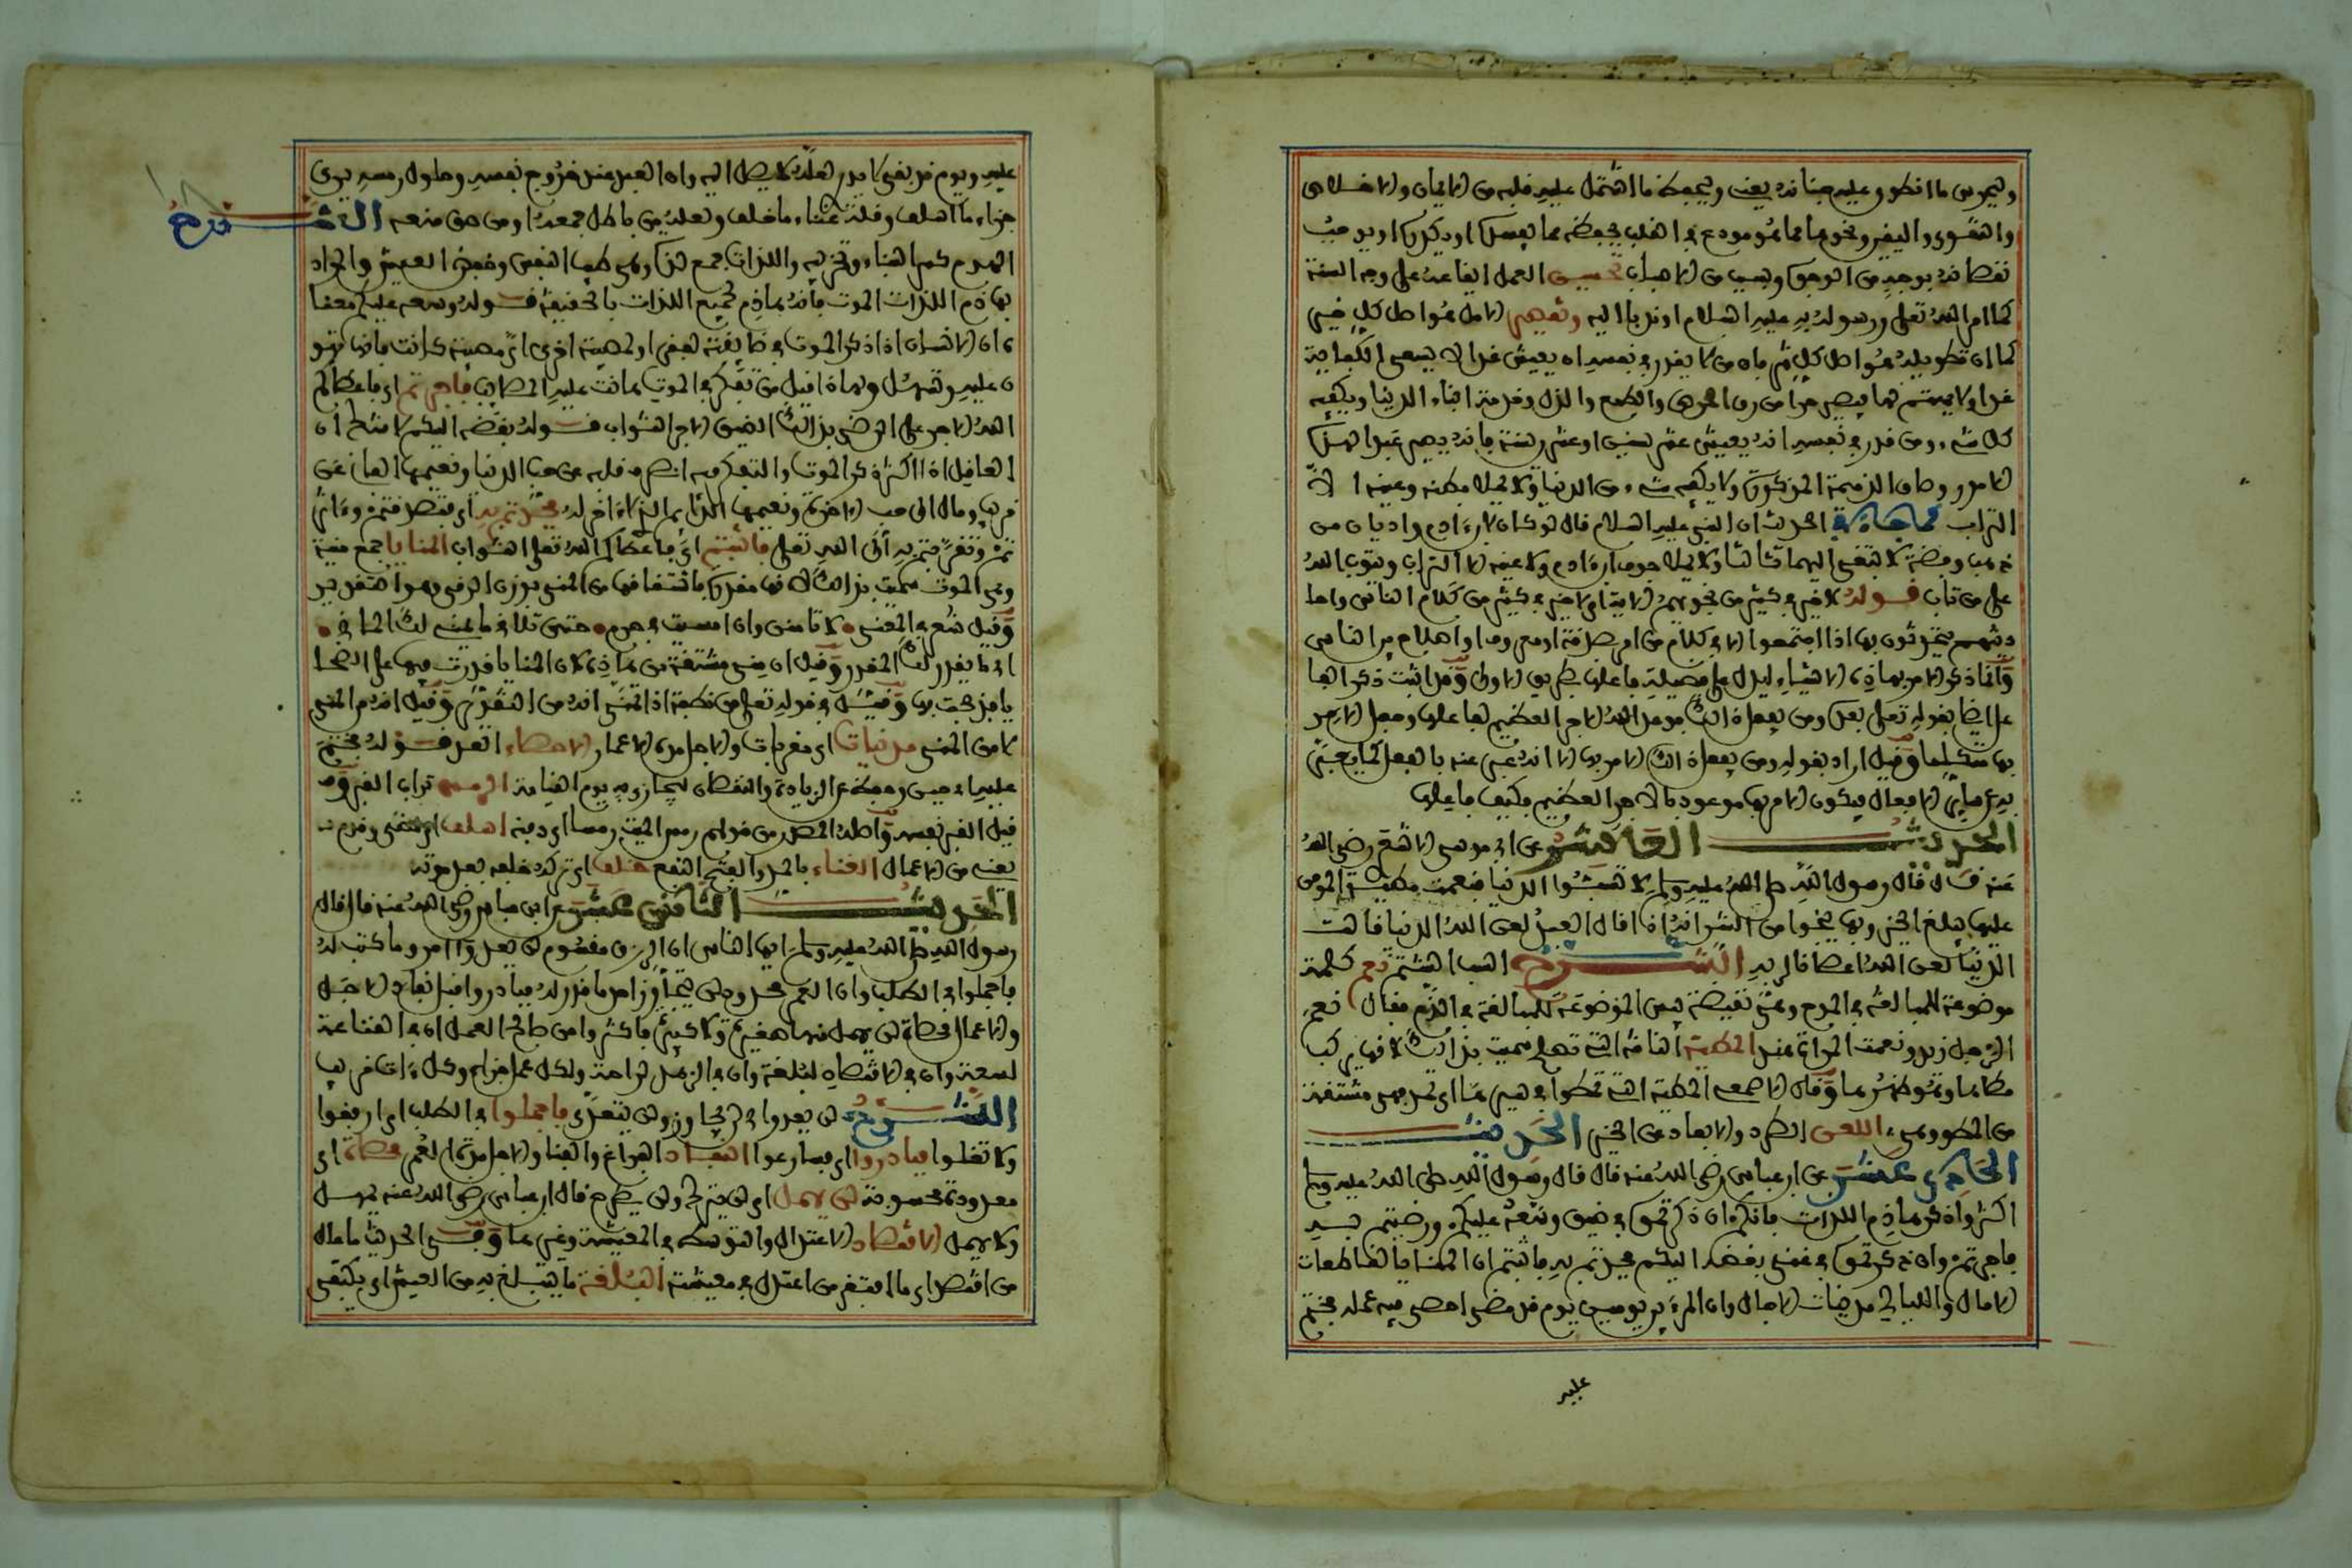 ويحرس ما انطوى عليه جنانه يعني ويحفظ ما اشتمل عليه قلبه من الايمان والاخلاص
والتقوى واليقين ونحوها مما هو مودع في القلب يحفظه مما يفسد او يكدر او يوجب
نقصانه بوجه من الوجوه وبسبب من الاسباب تحسين العمل ايقاعه على وجه السنة
كما امر الله تعلى ورسوله به عليه السلام او ندبا اليه وتقصير الامل هو اصل كل خير
كما ان تطويله هو اصل كل شر فان من لا يقدر في نفسه ان يعيش غدا لا يسعى لكفاية
غدا ولا يهتم لها فيصير حرا من رق الحرص والطمع والذل وخدمة ابناء الدنيا ويكفيه
كل شيء ومن قدر في نفسه انه يعيش عشر سنين او عشرين سنة فانه يصير عبدا لهذه
الامور وصاف الذميمة المذكورة ولا يكفيه شيء من الدنيا ولا يملا بطنه وعينه الا
التراب كما جاء في الحديث ان النبي عليه السلام قال لو كان لابن ءادم واديان من
ذهب وفضة لا بتغى اليهما ثالثا ولا يملا جوف ابن ءادم ولا عينه الا التراب ويتوب الله
على من تاب قوله لا خير في كثير من نجويهم الاية اي لا خير في كثير من كلام الناس واحا
ديثهم يتحدثون بها اذا اجتمعوا الا في كلام من امر بصدقة او معروف او اصلاح بين الناس
وانما ذكر الامر بهاذه الاشياء ليدل على فضيلة فاعلها بطريق الاولى وقد اثبت ذكر الفا
عل ايضا بقوله تعلى بعد ومن يفعل ذالك فوعد الله الاجر العظيم لفاعلها وجعل الامر
بها متكلما وقيل اراد بقوله ومن يفعل ذالك الامر بها الا انه عبر عنه بالفعل كما يعبر
به عن ساير الافعال فيكون الامر بها موعودا بالاجر العظيم فكيف فاعلها
الحديث العاشر عن ابي موسى الاشعري رضي الله
عنه قال قال رسول الله صلى الله عليه وسلم لا تسبوا الدنيا فنعمت مطية المومن
عليها يبلغ الخير وبها ينجوا من الشر انه اذا قال العبد لعن الله الدنيا قالت
الدنيا لعن الله اعصانا لربه الشرح السب الشتم نعم كلمة
موضوعة للمبالغة في المدح وهي نقيضة بيس الموضوعة للمبالغة في الذم فقال نعم
الرجل زيد ونعمت المراة هند المطية الناقة التي تصلح سميت بذالك لانها يركب
مطاها وهو ظهرها وقال الاصمعي المطية التي تمطوا في سيرها اي تمد وهي مشتقة
من المطو وهي اللعن الطرد والابعاد من الخير الحديث
الحادي عشر عن ابن عباس رضي الله عنه قال قال رسول الله صلى الله عليه وسلم
اكثروا ذكر هاذم اللذات فانكم ان ذكرتموه في ضيق وسعه عليكم ورضيتم به
فاجرتم وان ذكرتموه في غنى بغضه اليكم فجدتم به فاثبتم ان المنايا قاطعات
الامال والليالي مدنيات الاجال وان المرء بين يومين يوم قد مضى احصي فيه عمله فختم
عليه
عليه ويوم قد بقي لا يدري لعله لا يصل اليه وان العبد عند خروج نفسه وحلول رمسه يرى
جزاء ما اسلف وقلة غناء ما خلف ولعله من باطل جمعه او من حق منعه الشرح
الهدم كسر البناء وتخريبه واللذات جمع لذة وهي طيب النفس وخفض العيش والمراد
بهاذم اللذات الموت فانه هاذم لجميع اللذات بالحقيقة قوله وسعه عليكم معنا
ه ان الانسان اذا ذكر الموت في ضايقة لفقر او لمصيبة اخرى اي مصيبة كانت فانها تهو
ن عليه وتسهل ولهاذا قيل من تفكر في الموت هانت عليه المصايب فاجرتم اي فاعطاكم
الله الاجر على الرضى بذالك الضيق الاجر الثواب قوله بغضه اليكم لا شك ان
الغافل اذا اكثر ذكر الموت والتفكر فيه انصرف قلبه عن حب الدنيا ونعيمها الفاني عن
قريب ومال الى حب الاخرة ونعيمها الدايم الذي لا ءاخر له فجدتم به اي فتصدقتم وءاثر
تم وتقربتم به الى الله تعلى فاثبتم اي فاعطاكم الله تعلى الثواب المنايا جمع منية
وهي الموت سميت بذالك لانها مقدرة فاشتقاقها من المني بوزن الرمي وهو التقدير
وقيل شعر في المعنى لا تامنن وان امسيت في حرم حتى تلاقي ما يمني لك الماني
اي ما يقدر لك المقدر وقيل ان منى مشتقة من هاذه لان المنايا قدرت فيها على الضحا
يا فذبحت بها وقيل في قوله تعلى من نطفة اذا تمنى انه من التقدير وقيل انه من المني
لا من المنى مدنيات اي مقربات والاجال مدة الاعمار الاحصاء العد قوله فختم
عليه اي حبس وحفظ عن الزيادة والنقصان ليجازى به يوم القيامة الرمس تراب القبر وقد
قيل القبر نفسه واصله المصدر من قولهم رمس الميت رمسا اي دفنه اسلف اي مضى وقدم
يعني من الاعمال الغناء بالمد والفتح النفع خلف اي تركه خلفه بعد موته
الحديث الثاني عشر عن ابن عباس رضي الله عنه قال قال
رسول الله صلى الله عليه وسلم ايها الناس ان الرزق مقسوم لن يعدوا امرؤ ما كتب له
فاجملوا في الطلب وان العمر محدود لن يتجاوز احد ما قدر له فبادروا قبل نفاد الاجل
والاعمال محصاة لن يهمل منها صغيرة ولا كبيرة فاكثروا من صالح العمل ان في القناعة
لسعة وان في الاقتصاد لبلغة وان في الزهد لراحة ولكل عمل جزاء وكل ءات قريب
الشرح لن يعدوا اي لن يجاوز ولن يتعدى فاجملوا في الطلب اي ارفقوا
ولا تغلوا فبادروا اي فسارعوا النفاد الفراغ والفنا والاجل مدة العمر محصاة اي
معدودة محسوبة لن يهمل اي لن يترك ولن يطرح قال ابن عباس رضي الله عنه يمهل
ولا يهمل الاقتصاد الاعتدال والتوسط في المعيشة وغيرها وفي الحديث ما عال
من اقتصد اي ما افتقر من اعتدل في معيشته البلغة ما يتبلغ به من العيش اي يكتفى